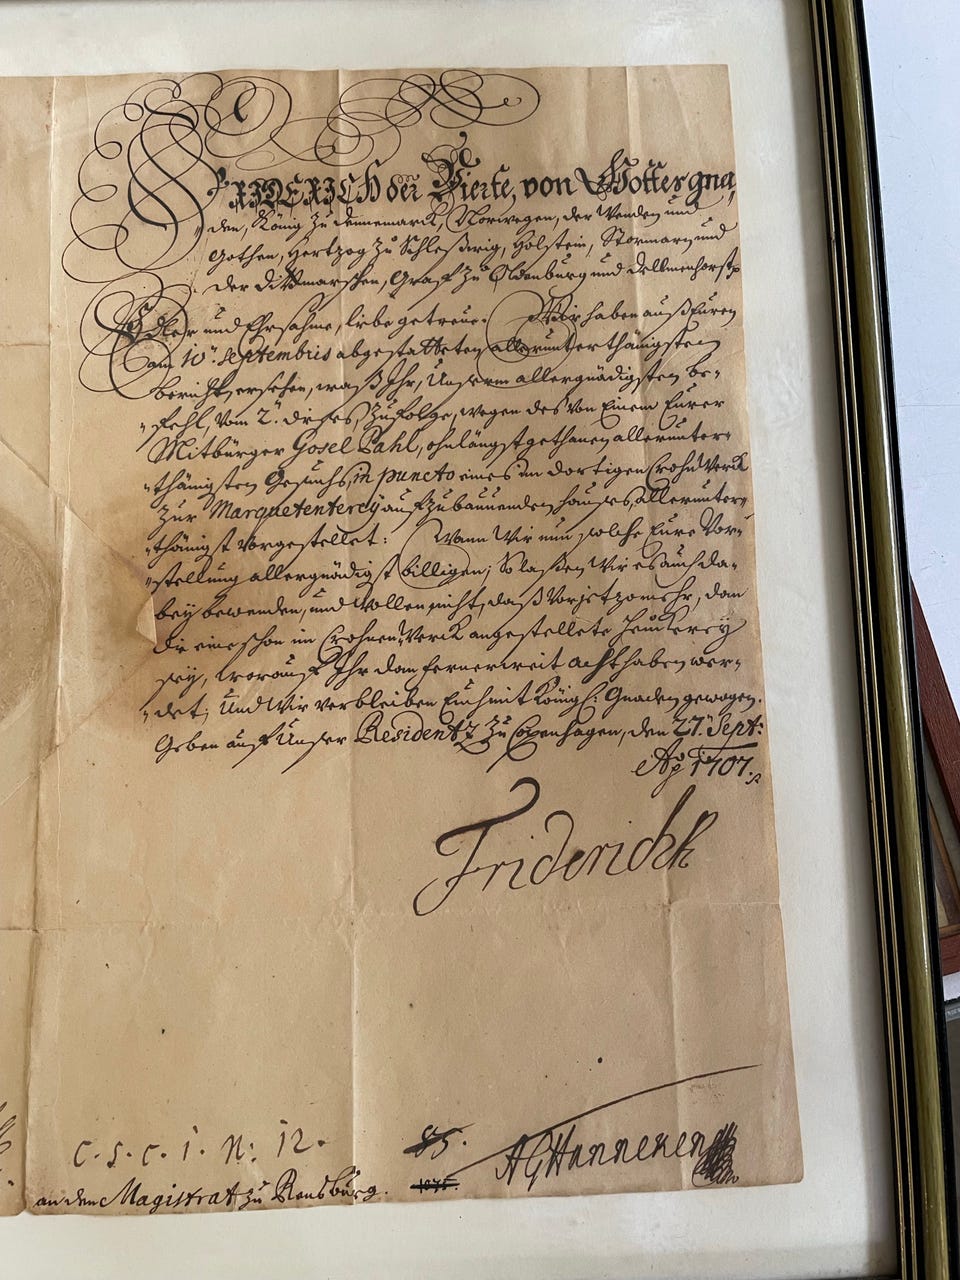 FRIDERICH der Vierte, von Gottes gna-
den, König zu Dennemarck, Norwegen, der Wenden und
Gothen, Hertzog zu Schleßwig, Holstein, Stormarn und
der Dittmarschen, Graf zu Oldenburg und Dellmenhorst p
Edler und Ehrsahme, liebe getreue. Wir haben auß Euren
am 10. Septembris abgestatteten allerunterthänigsten
Bericht ersehen, waß Ihr, Unserm allergnädigsten Be-
fehl, vom 2. dieses, zufolge, wegen des von Einem Eurer
Mitbürger Gosel Pahl, ohnlängst gethanen allerunter-
thänigsten Gesuchs, in puncto eines im dortigen Crohn Werck
zur Marquetenterey aufzubauenden Hauses, allerunter-
thänigst vorgestellet: Wann Wir nun solche Eure Vor-
stellung allergnädigst billigen; So laßen Wir es auch da-
bey bewenden, und wollen nicht, daß vorjetzo mehr, dan
die eine schon im Crohnen-Werck angestellete
sey, worauf Ihr dan fernerweit acht haben wer-
det; Und Wir verbleiben Euch mit Königl: Gnaden gewogen.
Geben auf Unser Residentz zu Copenhagen, den 27. Sept:
Ao 1707.
Friderich R
C. S. C. 1. N: 12.
85.
1875.
AGHanneken
an den Magistrat zu Rensburg.